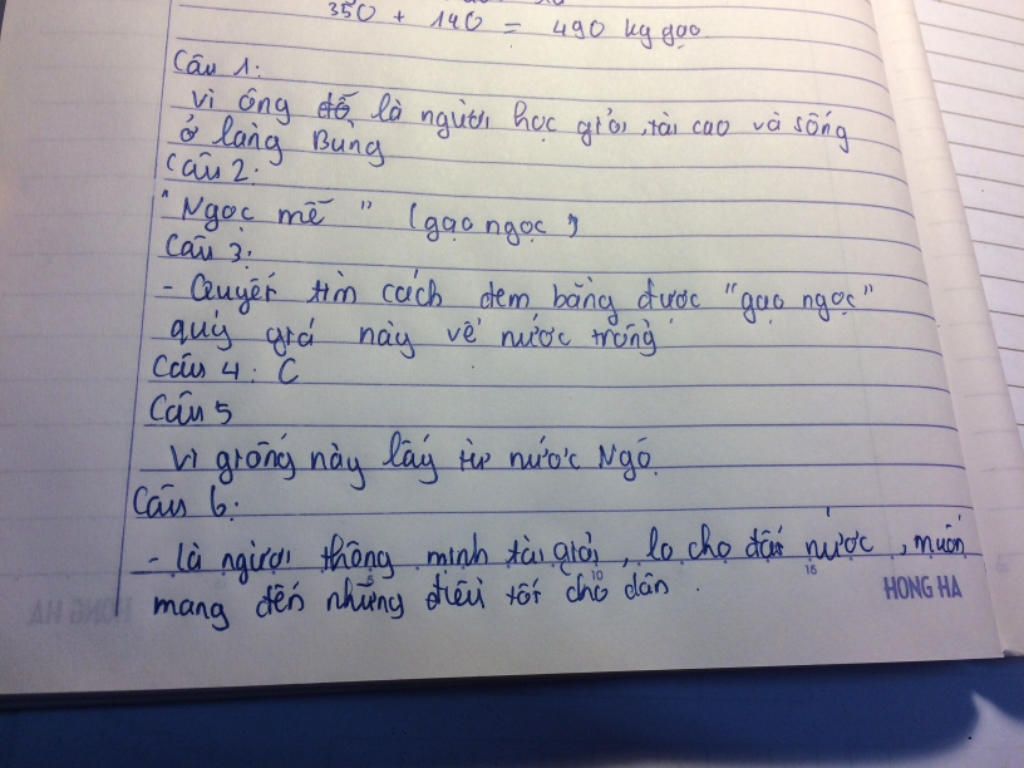 350 + 140 = 490 kg gạo
Câu 1:
vì ông đỗ là người học giỏi, tài cao và sống
ở làng Bùng
Câu 2:
"Ngọc mễ" (gạo ngọc)
Câu 3:
- Quyết tìm cách đem bằng được "gạo ngọc"
quý giá này về nước trồng
Câu 4: C
Câu 5
Vì giống này lấy từ nước Ngô.
Câu 6:
- là người thông minh tài giỏi, lo cho đất nước, muốn
mang đến những điều tốt cho dân.
5 10 15
HONG HA
HONG HA